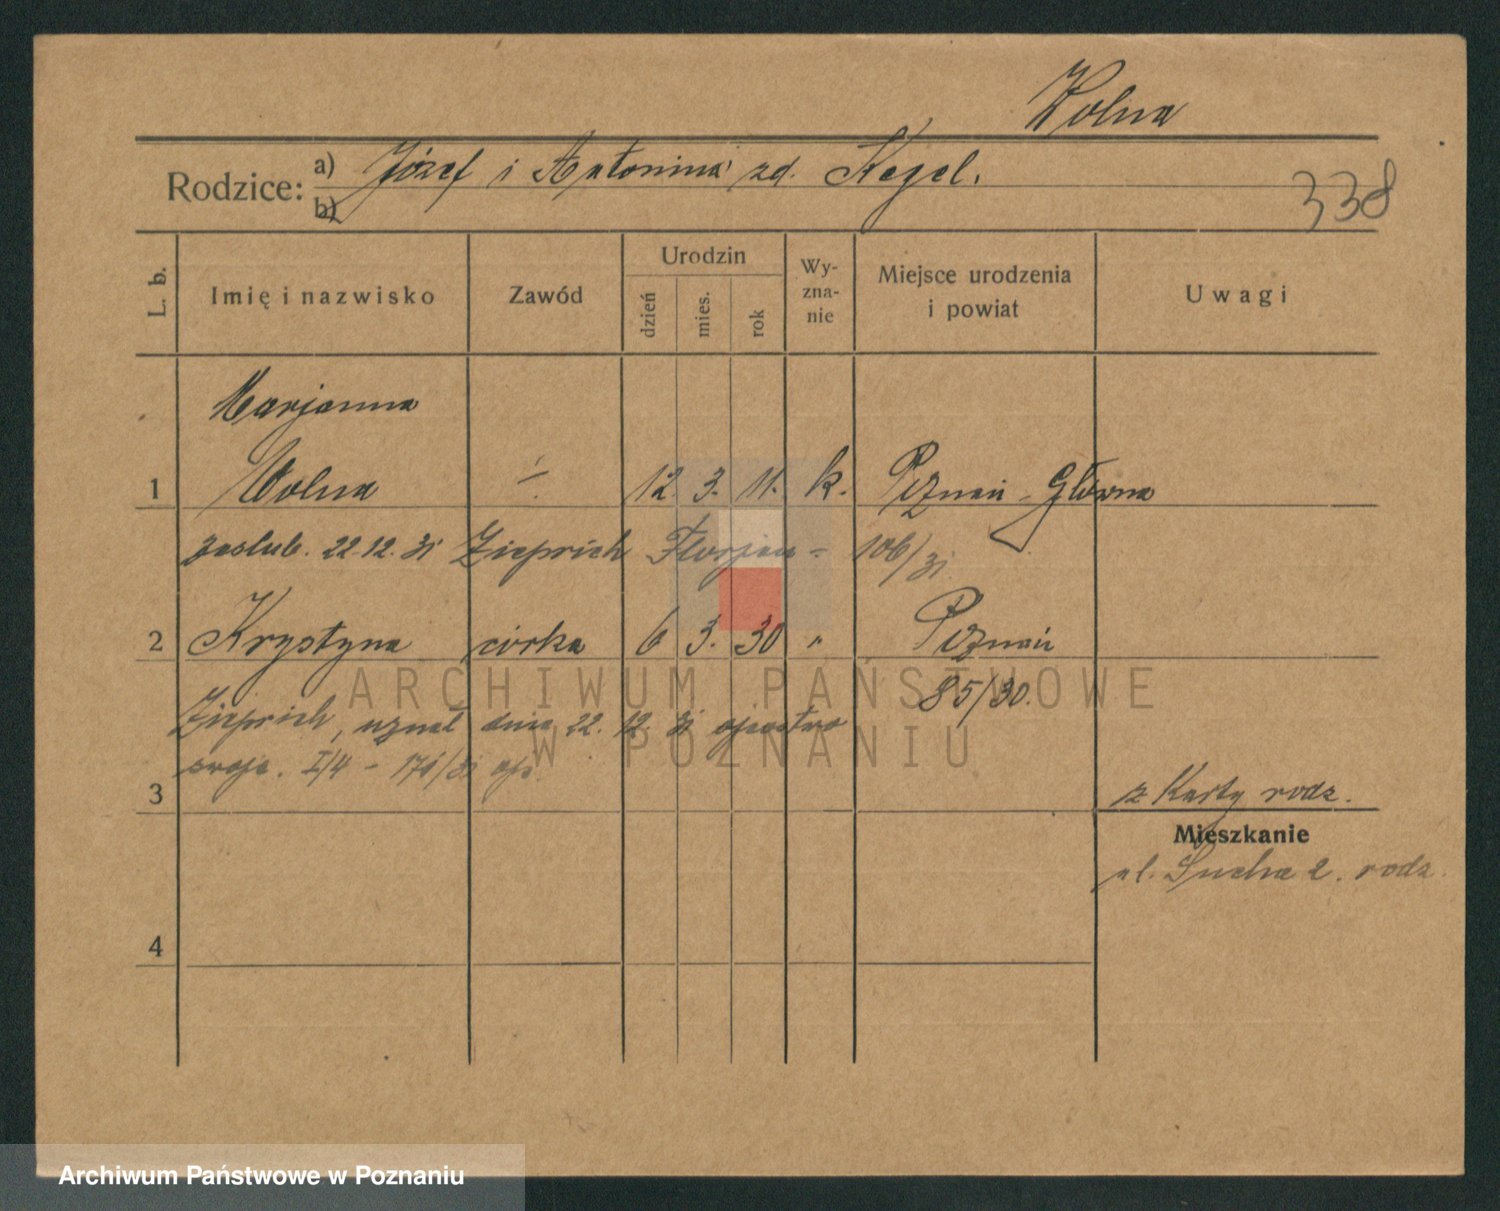 Wolna
Rodzice: a) Józef i Antonina zd. Kegel.
b)
338
L. b.
Imię i nazwisko
Zawód
Urodzin
dzień
mies.
rok
Wy-
zna-
nie
Miejsce urodzenia
i powiat
Uwagi
Marjanna
1 Wolna ÷ 12. 3. 11. k. Poznań - Główna
zaślub. 22.12.31 Zieprich Florjan - 106/31
2 Krystyna córka 6 3. 30 " Poznań
85/30.
Zieprich, uznał dnia 22. 12. 31 ojcostwo
swoje. I/4 -
3
z Karty rodz.
Mieszkanie
ul. Sucha 2. rodz.
4
ARCHIWUM PAŃSTWOWE
W POZNANIU
Archiwum Państwowe w Poznaniu